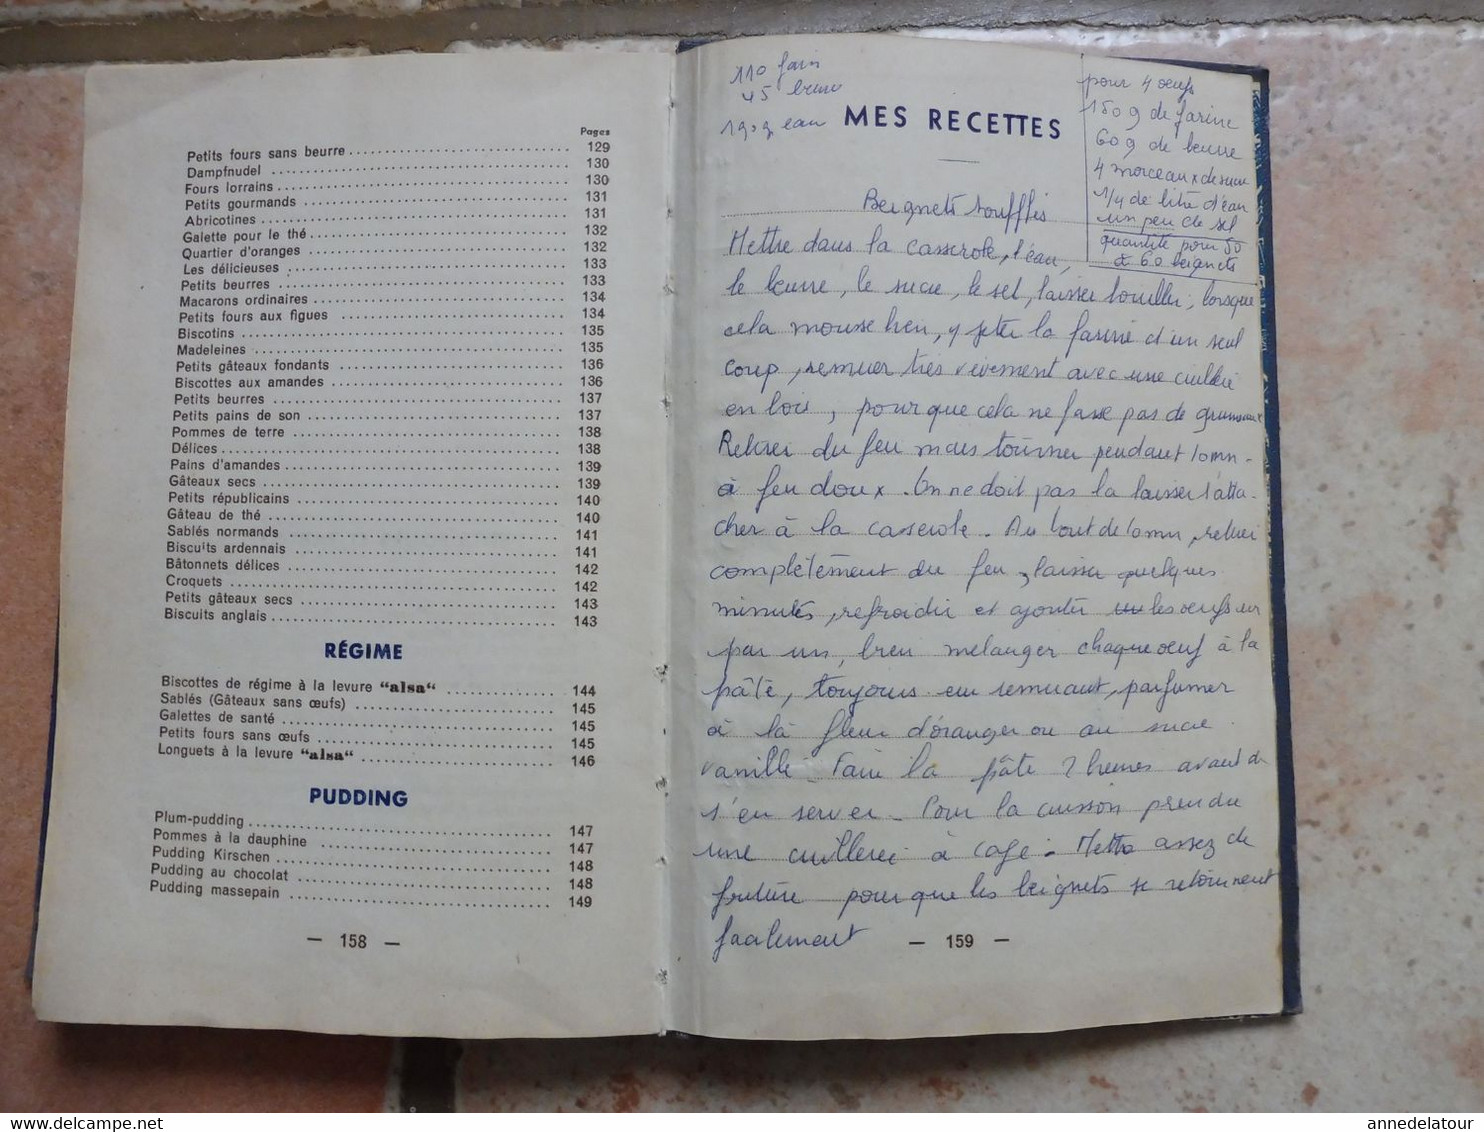 Pages
Petits fours sans beurre 129
Dampfnudel 130
Fours lorrains 130
Petits gourmands 131
Abricotines 131
Galette pour le thé 132
Quartier d'oranges 132
Les délicieuses 133
Petits beurres 133
Macarons ordinaires 134
Petits fours aux figues 134
Biscotins 135
Madeleines 135
Petits gâteaux fondants 136
Biscottes aux amandes 136
Petits beurres 137
Petits pains de son 137
Pommes de terre 138
Délices 138
Pains d'amandes 139
Gâteaux secs 139
Petits républicains 140
Gâteau de thé 140
Sablés normands 141
Biscuits ardennais 141
Bâtonnets délices 142
Croquets 142
Petits gâteaux secs 143
Biscuits anglais 143
RÉGIME
Biscottes de régime à la levure "alsa" 144
Sablés (Gâteaux sans œufs) 145
Galettes de santé 145
Petits fours sans œufs 145
Longuets à la levure "alsa" 146
PUDDING
Plum-pudding 147
Pommes à la dauphine 147
Pudding Kirschen 148
Pudding au chocolat 148
Pudding massepain 149
— 158 —
110 farin
45 beurre
190g eau
MES RECETTES
pour 4 oeufs
150 g de farine
60 g de beurre
4 morceaux de sucre
1/4 de litre d'eau
un peu de sel
quantité pour 50
à 60 beignets
Beignets soufflés
Mettre dans la casserole, l'eau,
le beurre, le sucre, le sel, laisser bouillir, lorsque
cela mousse bien, y jeter la farine d'un seul
coup, remuer très vivement avec une cuillère
en bois, pour que cela ne fasse pas de grumeaux
Retirer du feu mais tourner pendant 10mn
à feu doux. On ne doit pas la laisser s'atta-
cher à la casserole. Au bout de 10mn, retirer
complètement du feu, laisser quelques
minutes, refroidir et ajouter les oeufs un
par un, bien mélanger chaque oeuf à la
pâte, toujours en remuant, parfumer
à la fleur d'oranger ou au sucre
vanillé. Faire la pâte 2 heures avant de
s'en server. Pour la cuisson prendre
une cuillerée à café. Mettre assez de
friture pour que les beignets se retournent
facilement
— 159 —
annedelatour